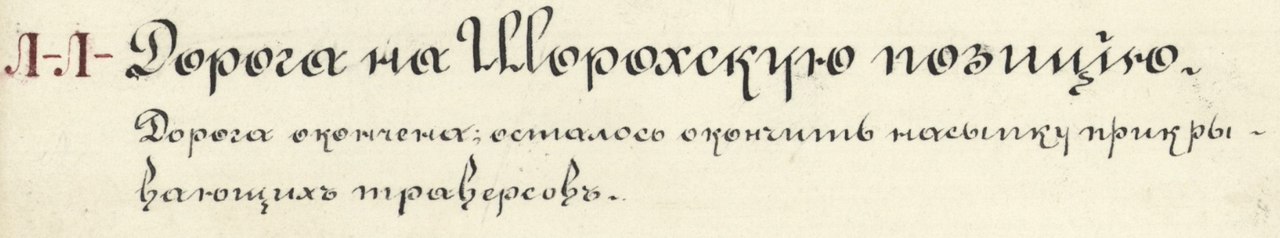 Л-Л- Дорога на Шорохскую позицію.
Дорога окончена; осталось окончить насыпку прикры-
вающихъ траверсовъ.